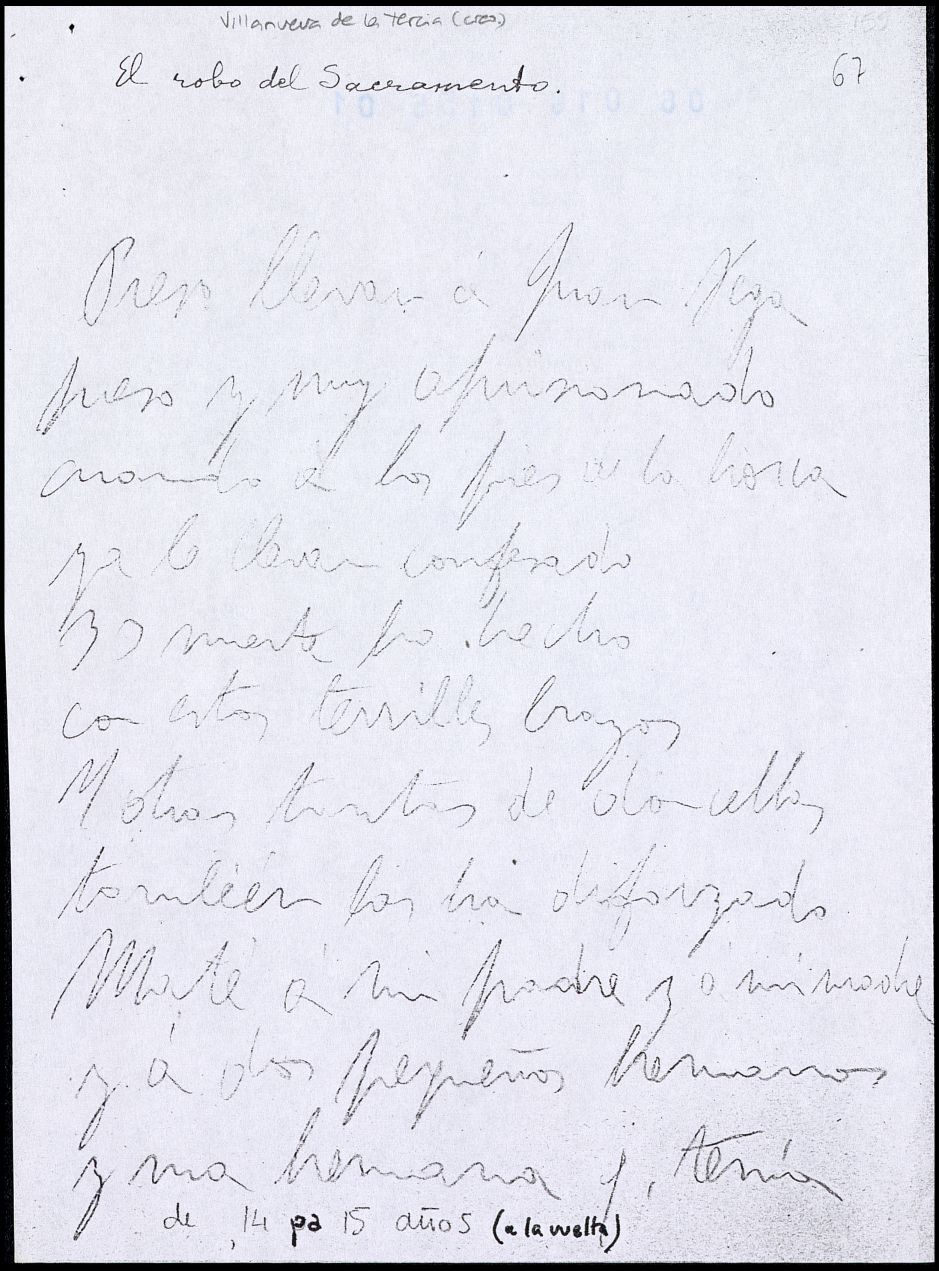 Villanueva de la Tercia (creo)
159
El robo del Sacramento.
67
Preso llevan á Juan Vega
preso y muy aprisionado
cuando á los pies de la horca
ya le llevan confesado
33 muerte ho hecho
con estos terribles brazos
Y otras tantas de doncellas
también las hia difurzado
Maté á mi padre y á mi madre
y á dos pequeños hermanos
y una hermana q. tenía
de 14 pa 15 años (a la vuelta)